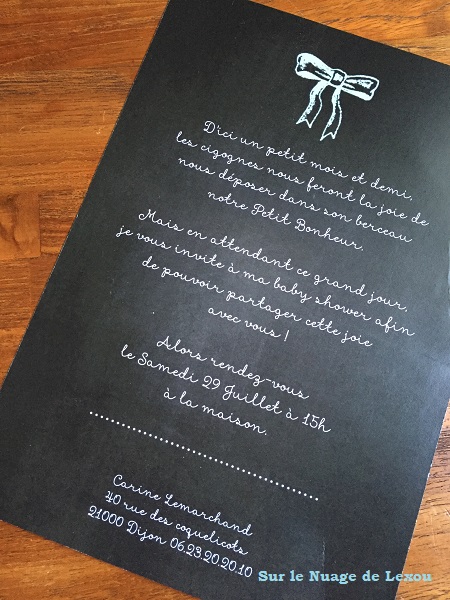 D'ici un petit mois et demi,
les cigognes nous feront la joie de
nous déposer dans son berceau
notre Petit Bonheur.
Mais en attendant ce grand jour,
je vous invite à ma baby shower afin
de pouvoir partager cette joie
avec vous !
Alors rendez-vous
le Samedi 29 Juillet à 15h
à la maison.
Corine Lemarchand
40 rue des coquelicots
21000 Dijon 06.23.20.20.10
Sur le Nuage de Lexou